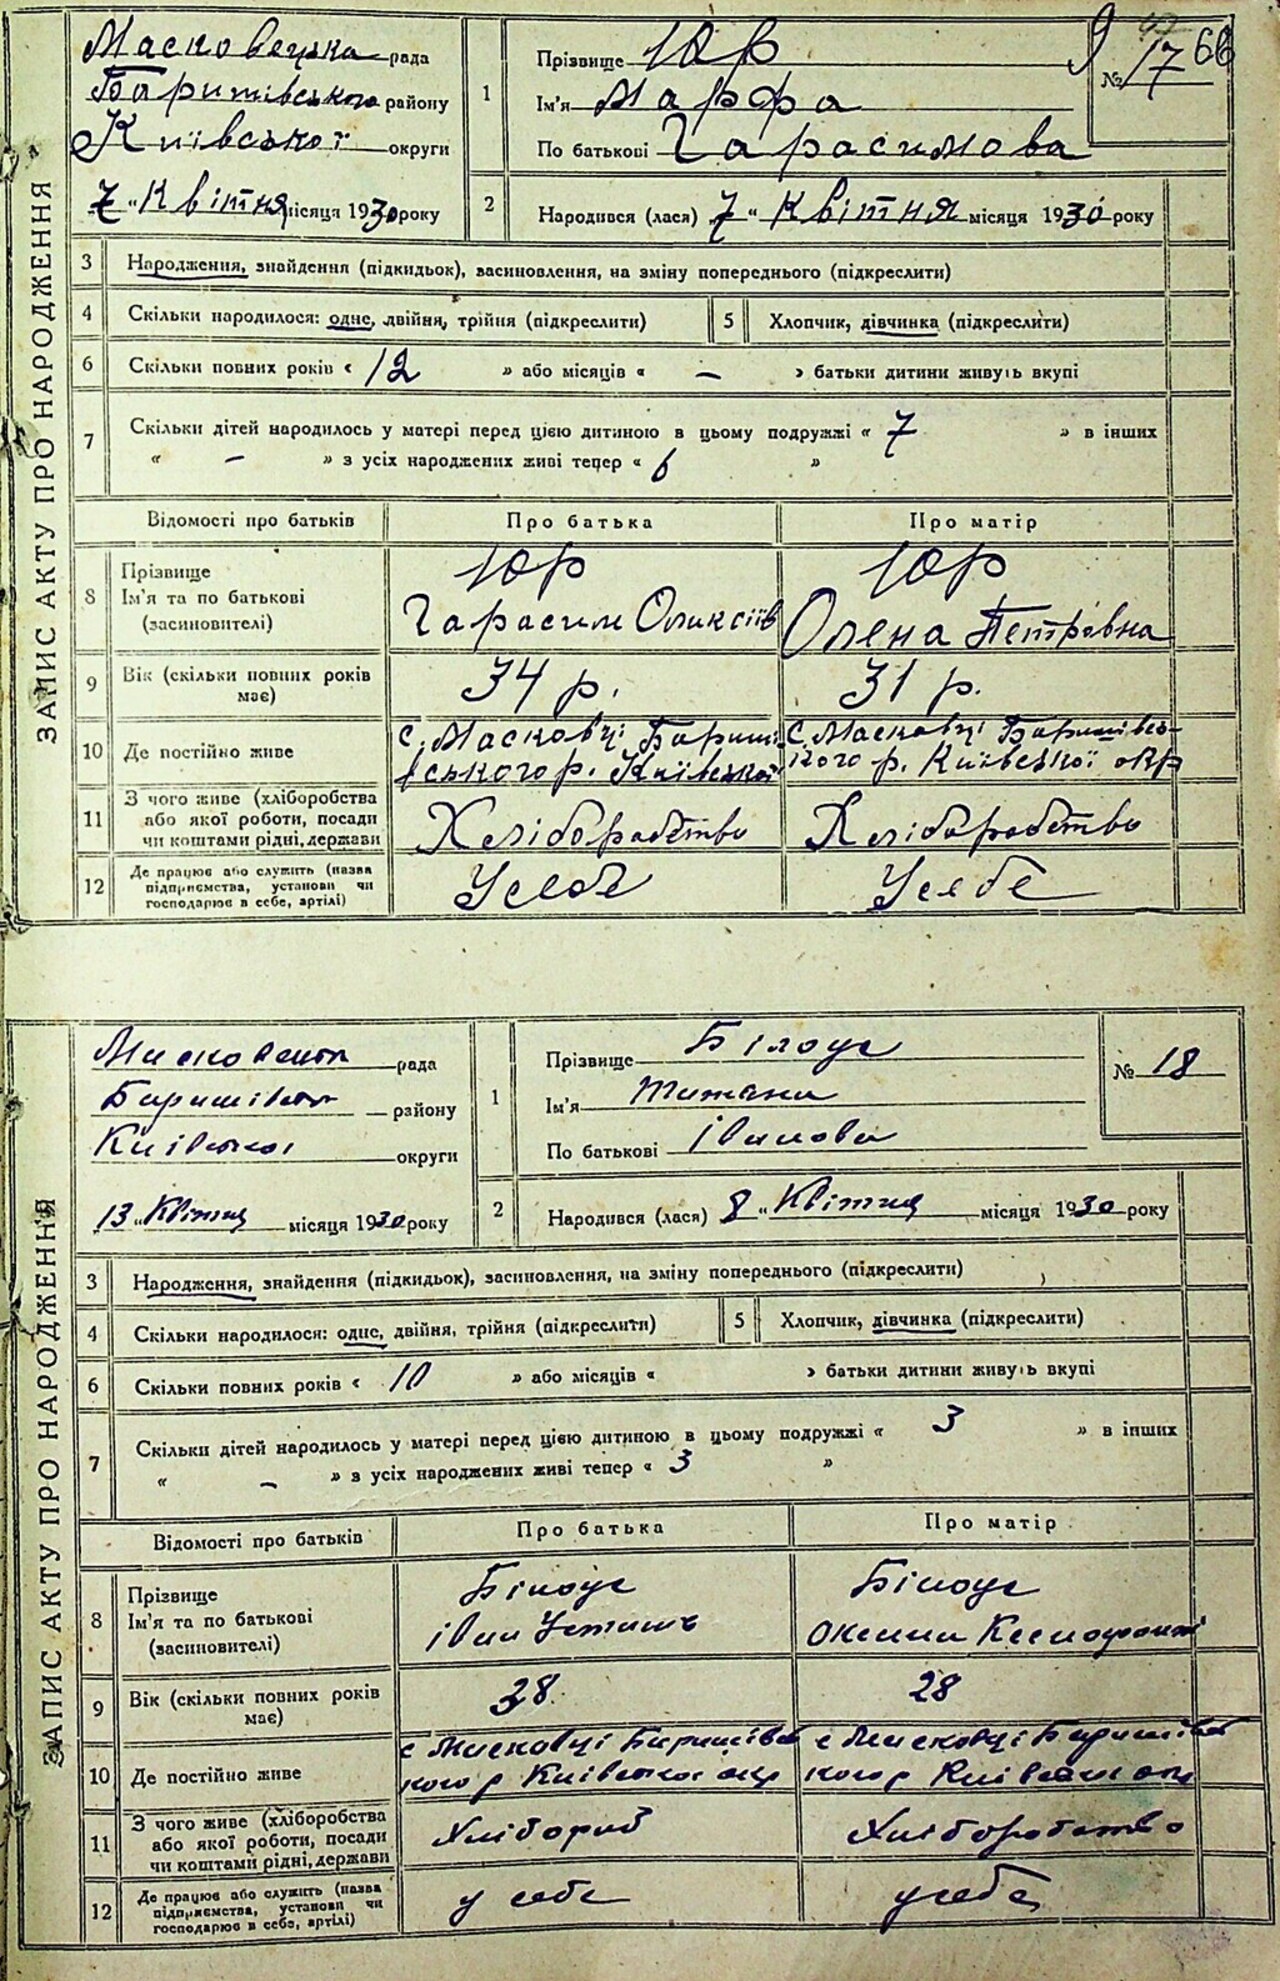 Масковецька рада
Баришівського району
Київської округи
7 „ Квітня місяця 1930 року
1
Прізвище Юр
Ім'я Марфа
По батькові Гарасимова
№ 17
66
2
Народився (лася) 7 „ Квітня місяця 1930 року
ЗАПИС АКТУ ПРО НАРОДЖЕННЯ
3 Народження, знайдення (підкидьок), засиновлення, на зміну попереднього (підкреслити)
4 Скільки народилося: одне, двійня, трійня (підкреслити) 5 Хлопчик, дівчинка (підкреслити)
6 Скільки повних років « 12 » або місяців « – » батьки дитини живуть вкупі
7 Скільки дітей народилось у матері перед цією дитиною в цьому подружжі « 7 » в інших
« – » з усіх народжених живі тепер « 6 »
Відомості про батьків Про батька Про матір
8 Прізвище Юр Юр
Ім'я та по батькові Гарасим Оликсіїв Олена Петровна
(засиновителі)
9 Вік (скільки повних років має) 34 р. 31 р.
10 Де постійно живе
с. Масковці Бариші-
вського р. Київської
С. Масковці Баришівсь-
кого р. Київської окр
11 З чого живе (хліборобства
або якої роботи, посади
чи коштами рідні, держави
Хліборобство Хліборобство
12 Де працює або служить (назва
підприємства, установи чи
господарює в себе, артілі)
У себе У себе
Масковецька рада
Баришівськ району
Київської округи
13 „ Квітня місяця 1930 року
1
Прізвище Білоус
Ім'я Титяна
По батькові Іванова
№ 18
2
Народився (лася) 8 „ Квітня місяця 1930 року
ЗАПИС АКТУ ПРО НАРОДЖЕННЯ
3 Народження, знайдення (підкидьок), засиновлення, на зміну попереднього (підкреслити)
4 Скільки народилося: одне, двійня, трійня (підкреслити) 5 Хлопчик, дівчинка (підкреслити)
6 Скільки повних років « 10 » або місяців « » батьки дитини живуть вкупі
7 Скільки дітей народилось у матері перед цією дитиною в цьому подружжі « 3 » в інших
« – » з усіх народжених живі тепер « 3 »
Відомості про батьків Про батька Про матір
8 Прізвище Білоус Білоус
Ім'я та по батькові Іван Оксана
(засиновителі)
9 Вік (скільки повних років має) 38 28
10 Де постійно живе
с Масковці Баришівсь
кого р Київської окр
с Масковці Баришівсь
кого р Київської окр
11 З чого живе (хліборобства
або якої роботи, посади
чи коштами рідні, держави
Хлібороб Хліборобство
12 Де працює або служить (назва
підприємства, установи чи
господарює в себе, артілі)
у себе у себе